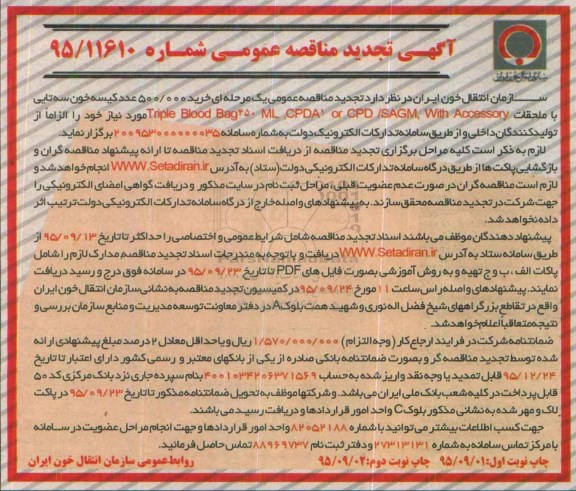 آگهی تجدید مناقصه عمومی شماره ۹۵/۱۱۶۱۰
سازمان انتقال خون ایران در نظر دارد تجدید مناقصه عمومی یک مرحله ای خرید ۵۰۰/۰۰۰ عدد کیسه خون سه تایی
با ملحقات Triple Blood Bag۴۵۰ ML ,CPDA۱ or CPD /SAGM, With Accessory مورد نیاز خود را الزاما از
تولیدکنندگان داخلی و از طریق سامانه تدارکات الکترونیک دولت به شماره سامانه ۲۰۰۹۵۳۰۰۰۰۰۰۰۳۵ برگزار نماید.
لازم به ذکر است کلیه مراحل برگزاری تجدید مناقصه از دریافت اسناد تجدید مناقصه تا ارائه پیشنهاد مناقصه گران و
بازگشایی پاکت ها از طریق درگاه سامانه تدارکات الکترونیکی دولت (ستاد) به آدرس WWW.Setadiran.ir انجام خواهد شد و
لازم است مناقصه گران در صورت عدم عضویت قبلی ، مراحل ثبت نام در سایت مذکور و دریافت گواهی امضای الکترونیکی را
جهت شرکت در تجدید مناقصه محقق سازند. به پیشنهادهای واصله خارج از درگاه سامانه تدارکات الکترونیکی دولت ترتیب اثر
داده نخواهد شد.
پیشنهاد دهندگان موظف می باشند اسناد تجدید مناقصه شامل شرایط عمومی و اختصاصی را حداکثر تا تاریخ ۹۵/۰۹/۱۳ از
طریق سامانه ستاد به آدرس WWW.Setadiran.ir دریافت و با توجه به مندرجات اسناد تجدید مناقصه، مدارک لازم را شامل
پاکات الف ، ب و ج تهیه و به روش آموزشی بصورت فایل های PDF تا تاریخ ۹۵/۰۹/۲۳ در سامانه فوق درج و رسید دریافت
نمایند. پیشنهادهای واصله راس ساعت ۱۱ مورخ ۹۵/۰۹/۲۴ در کمیسیون تجدید مناقصه به نشانی سازمان انتقال خون ایران
واقع در تقاطع بزرگراههای شیخ فضل اله نوری و شهید همت بلوک A در دفتر معاونت توسعه مدیریت و منابع سازمان بررسی و
نتیجه متعاقبا اعلام خواهد شد.
ضمانتنامه شرکت در فرایند ارجاع کار (وجه التزام ) ۱/۵۷۰/۰۰۰/۰۰۰ ریال و یا حداقل معادل ۲ درصد مبلغ پیشنهادی ارائه
شده توسط تجدید مناقصه گر و بصورت ضمانتنامه بانکی صادره از یکی از بانکهای معتبر و رسمی کشور دارای اعتبار تا تاریخ
۹۵/۱۲/۲۴ قابل تمدید یا وجه نقد واریز شده به حساب ۴۰۰۱۰۳۴۲۰۶۳۷۱۵۶۹ بنام سپرده جاری نزد بانک مرکزی کد ۵۰
قابل پرداخت در کلیه شعب بانک ملی ایران می باشد. و شرکتها موظف به تحویل ضمانتنامه مذکور تا تاریخ ۹۵/۰۹/۲۳ در پاکت
لاک و مهر شده به نشانی مذکور بلوک C واحد امور قراردادها و دریافت رسید می باشند.
جهت کسب اطلاعات بیشتر می توانید با شماره ۸۲۰۵۲۱۸۸ واحد امور قراردادها و جهت انجام مراحل عضویت در سامانه
با مرکز تماس سامانه به شماره ۲۷۳۱۳۱۳۱ و دفتر ثبت نام ۸۸۹۶۹۷۳۷ تماس حاصل فرمائید.
چاپ نوبت اول: ۹۵/۰۹/۰۱ چاپ نوبت دوم: ۹۵/۰۹/۰۲ روابط عمومی سازمان انتقال خون ایران